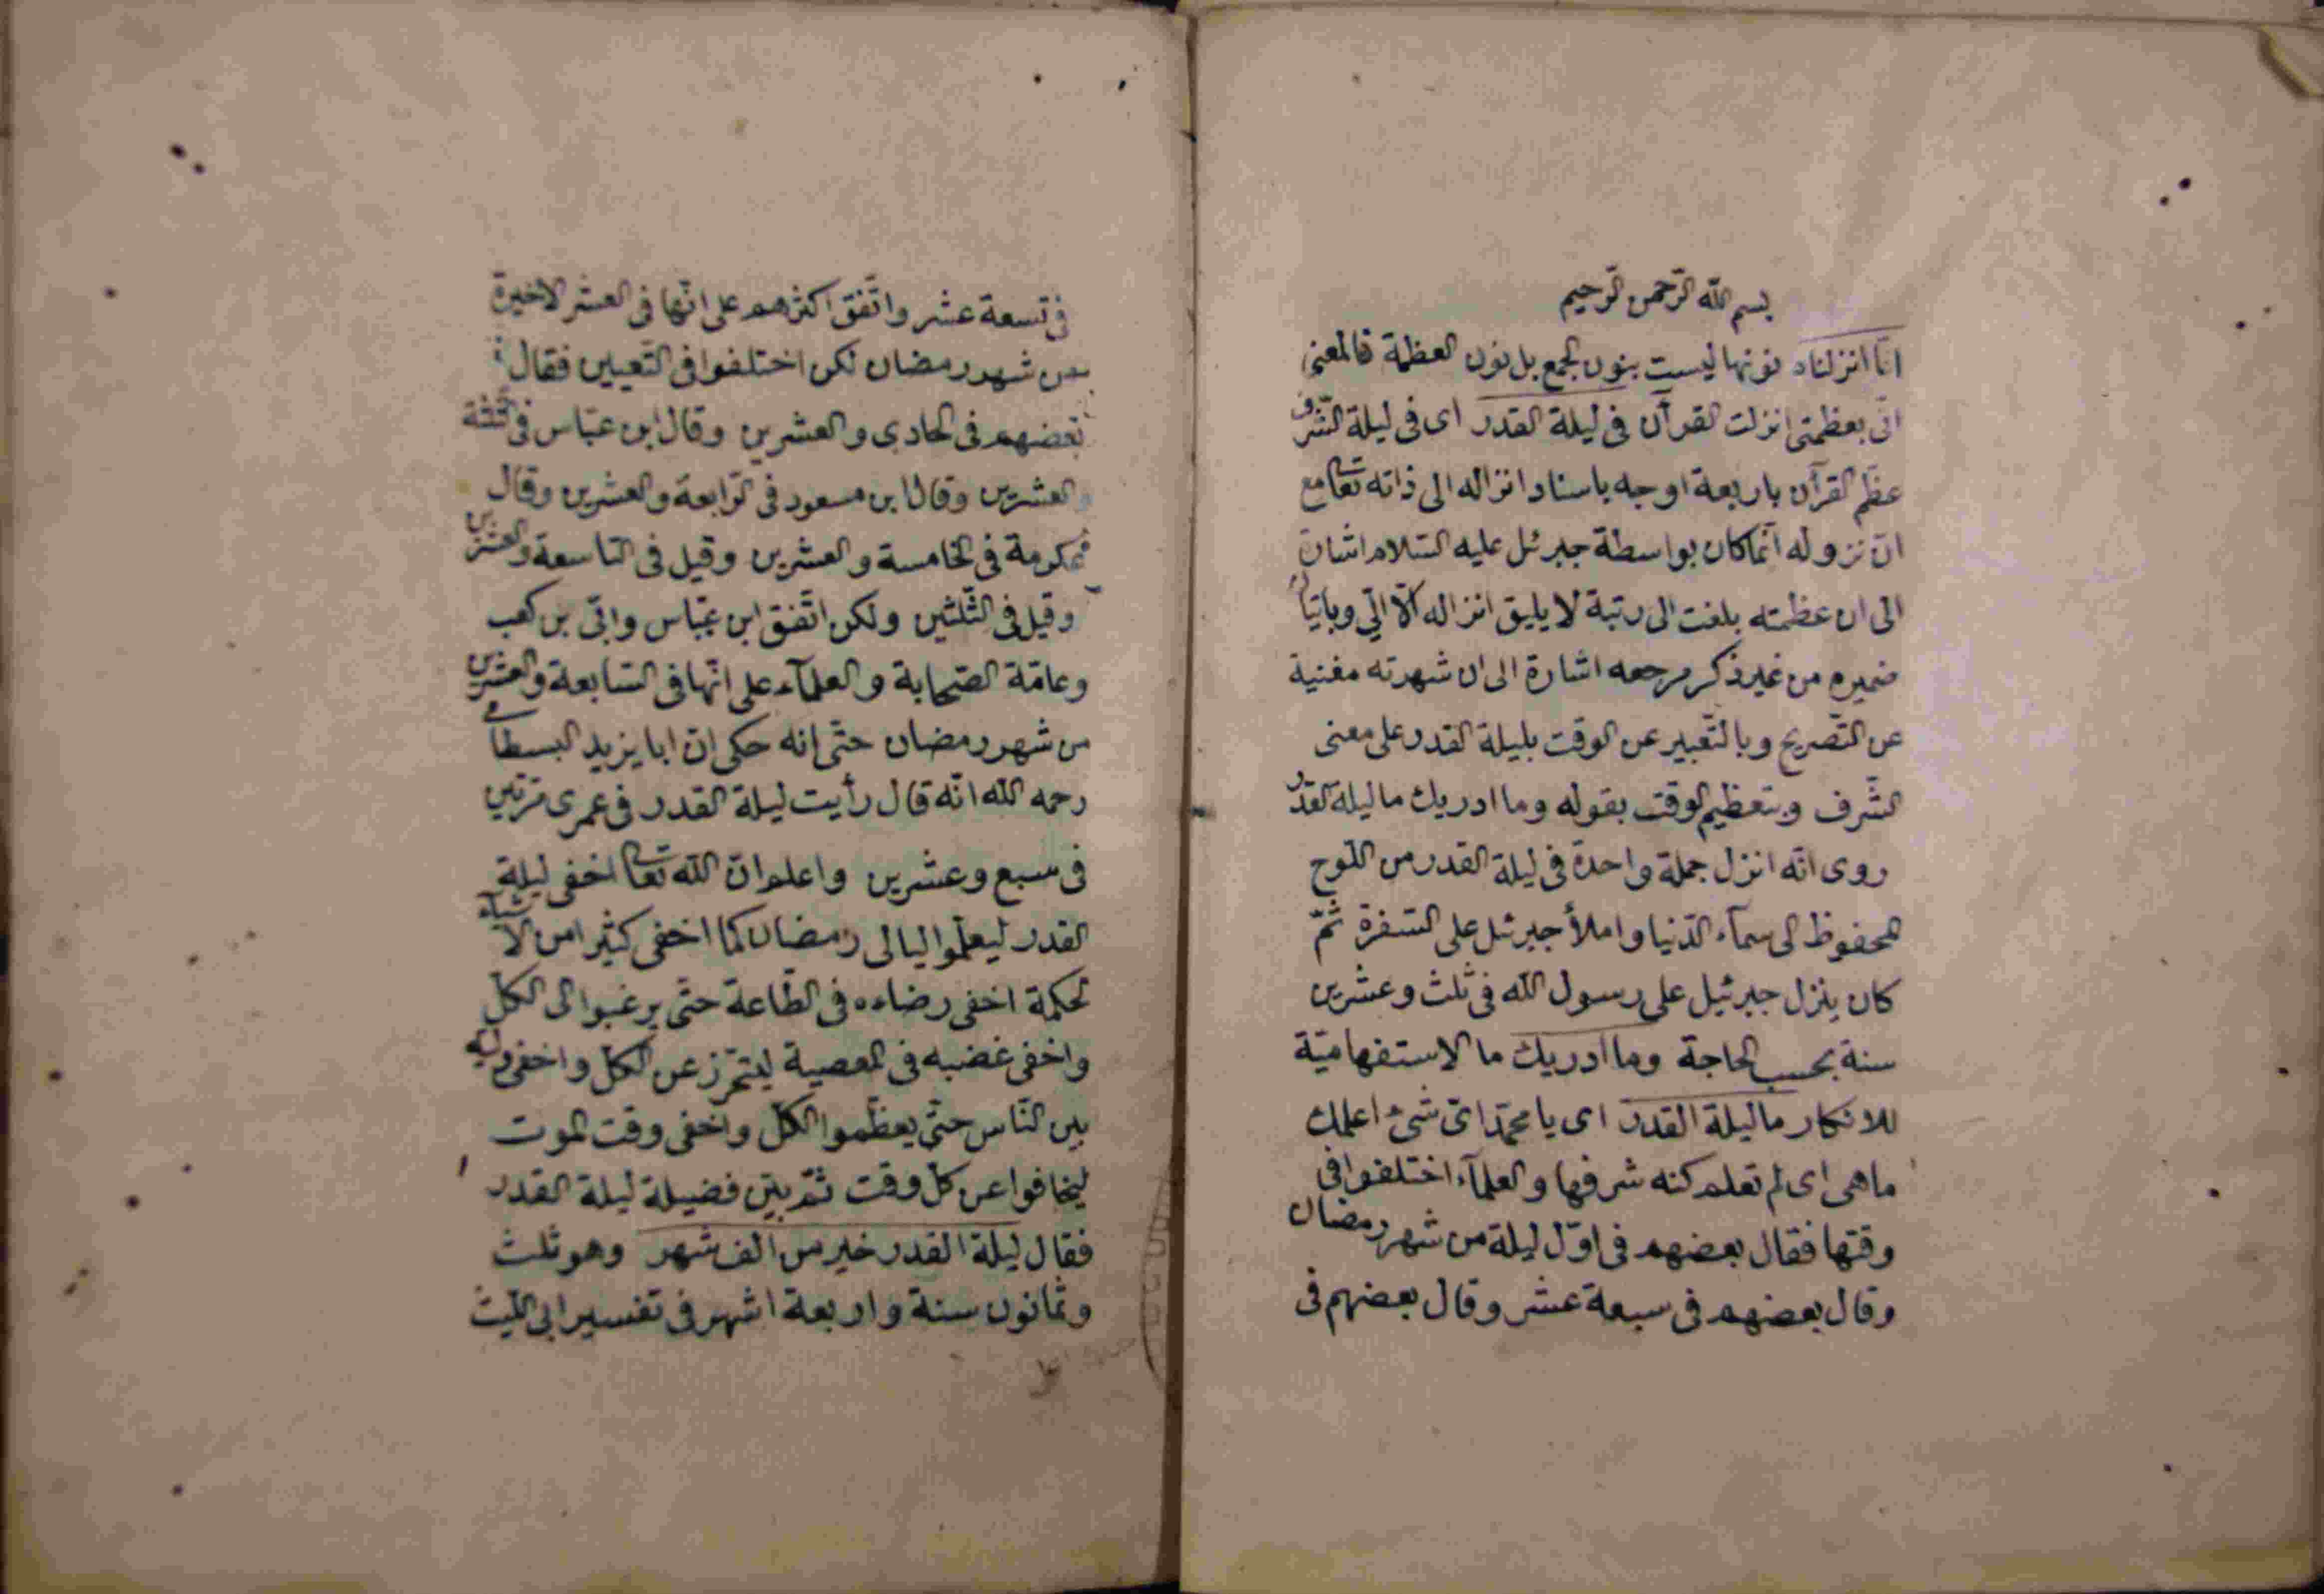 بسم الله الرّحمن الرّحيم
انّا انزلناه نونها ليست بنون الجمع بل نون العظمة فالمعنى
انّى بعظمتى انزلت القرآن فى ليلة القدر اى فى ليلة الشّرف
عظّم القرآن باربعة اوجه باسناد انزاله الى ذاته تعا مع
انّ نزوله انّما كان بواسطة جبرئل عليه السّلام اشارة
الى ان عظمته بلغت الى رتبة لا يليق انزاله الّا الىّ وباتيان
ضميره من غير ذكر مرجعه اشارة الى ان شهرته مغنية
عن التّصريح وبالتّعبير عن الوقت بليلة القدر على معنى
الشّرف وبتعظيم الوقت بقوله وما ادريك ما ليلة القدر
روى انّه انزل جملة واحدة فى ليلة القدر من اللّوح
المحفوظ الى سمآء الدّنيا واملأ جبرئل على السّفرة ثمّ
كان ينزل جبرئيل على رسول الله فى ثلث وعشرين
سنة بحسب الحاجة وما ادريك ما الاستفهاميّة
للانكار ما ليلة القدر اى يا محمّد اىّ شئ اعلمك
ما هى اى لم تعلم كنه شرفها والعلمآء اختلفوا فى
وقتها فقال بعضهم فى اوّل ليلة من شهر رمضان
وقال بعضهم فى سبعة عشر وقال بعضهم فى
فى تسعة عشر واتّفق اكثرهم على انّها فى العشر الاخيرة
من شهر رمضان لكن اختلفوا فى التّعيين فقال
بعضهم فى الحادى والعشرين وقال ابن عبّاس فى الثّلثة
والعشرين وقال ابن مسعود فى الرّابعة والعشرين وقال
عكرمة فى الخامسة والعشرين وقيل فى التّاسعة والعشرين
وقيل فى الثّلثين ولكن اتّفق ابن عبّاس وابىّ بن كعب
وعامّة الصّحابة والعلمآء على انّها فى السّابعة والعشرين
من شهر رمضان حتّى انه حكى انّ ابا يزيد البسطامى
رحمه الله انّه قال رأيت ليلة القدر فى عمرى مرّتين
فى سبع وعشرين واعلم انّ الله تعا اخفى ليلة
القدر ليعظّموا ليالى رمضان كما اخفى كثيرا من الاشيآء
لحكمة اخفى رضاءه فى الطّاعة حتّى يرغبوا الى الكلّ
واخفى غضبه فى المعصية ليتحرّز عن الكلّ واخفى وليّه
بين النّاس حتّى يعظّموا الكلّ واخفى وقت الموت
ليخافوا عن كلّ وقت ثمّ بيّن فضيلة ليلة القدر
فقال ليلة القدر خير من الف شهر وهو ثلث
وثمانون سنة واربعة اشهر فى تفسير ابى اللّيث